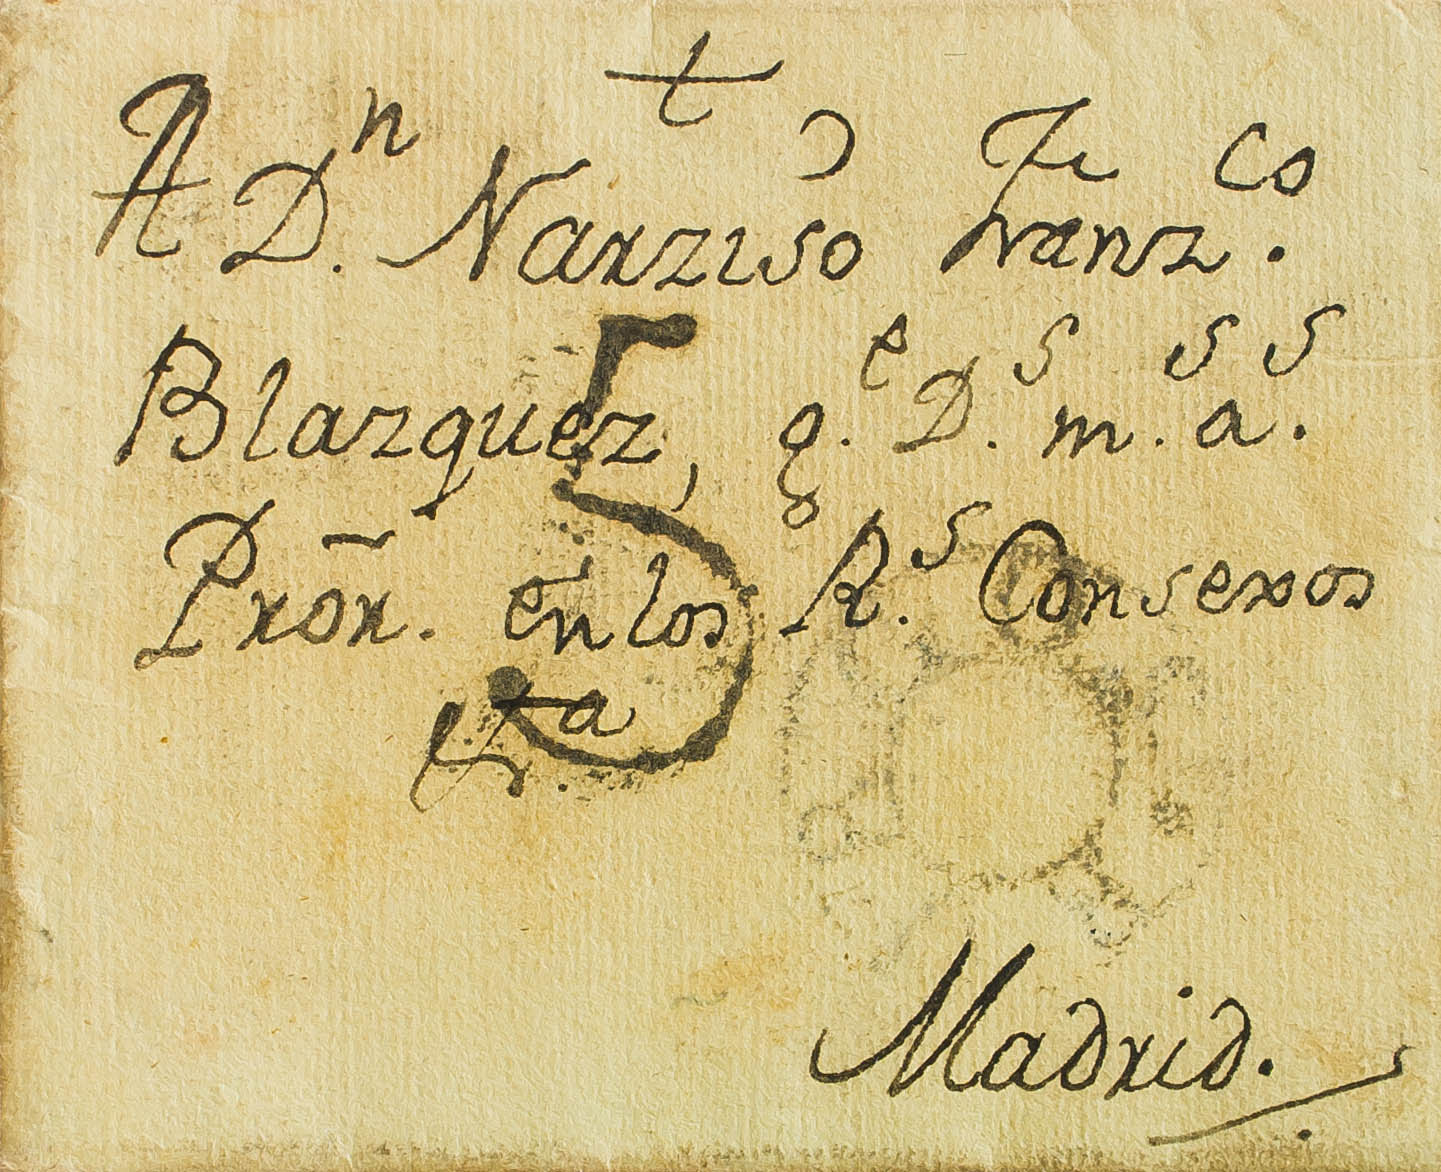 †
A Dⁿ. Narziso Franzᶜᵒ.
Blazquez, q.ᵉ D.ˢ m.ˢ a.ˢ
Pror̃. en los R.ˢ Consexos
&.ᵃ
5
Madrid.